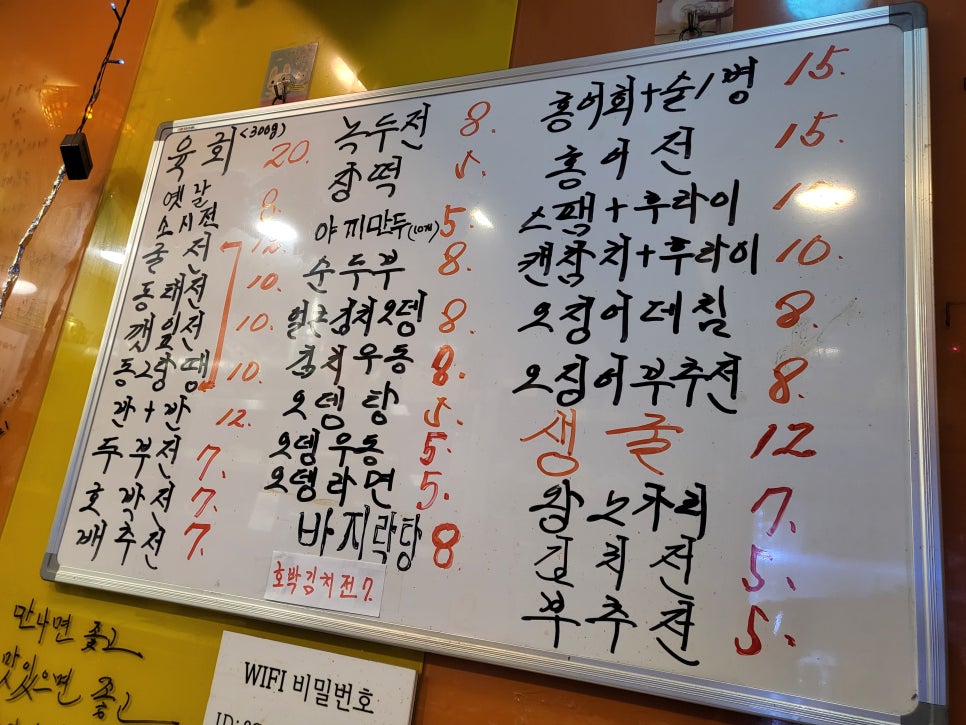 육회 <300g> 20.
옛날
소시전 8.
굴전 12.
동태전 10.
깻잎전 10.
동그랑땡 10.
깐+깐 12.
두부전 7.
호박전 7.
배추전 7.
녹두전 8.
장떡 5.
야끼만두(10개) 5.
순두부 8.
얼큰김치오뎅 8.
김치우동 8.
오뎅탕 5.
오뎅우동 5.
오뎅라면 5.
바지락탕 8
호박김치전 7.
홍어회+술1병 15.
홍어전 15.
스팸+후라이
캔참치+후라이 10.
오징어데침 8.
오징어부추전 8.
생굴 12
왕노가리 7.
김치전 5.
부추전 5.
만나면 좋고
맛있으면 좋고
WIFI 비밀번호